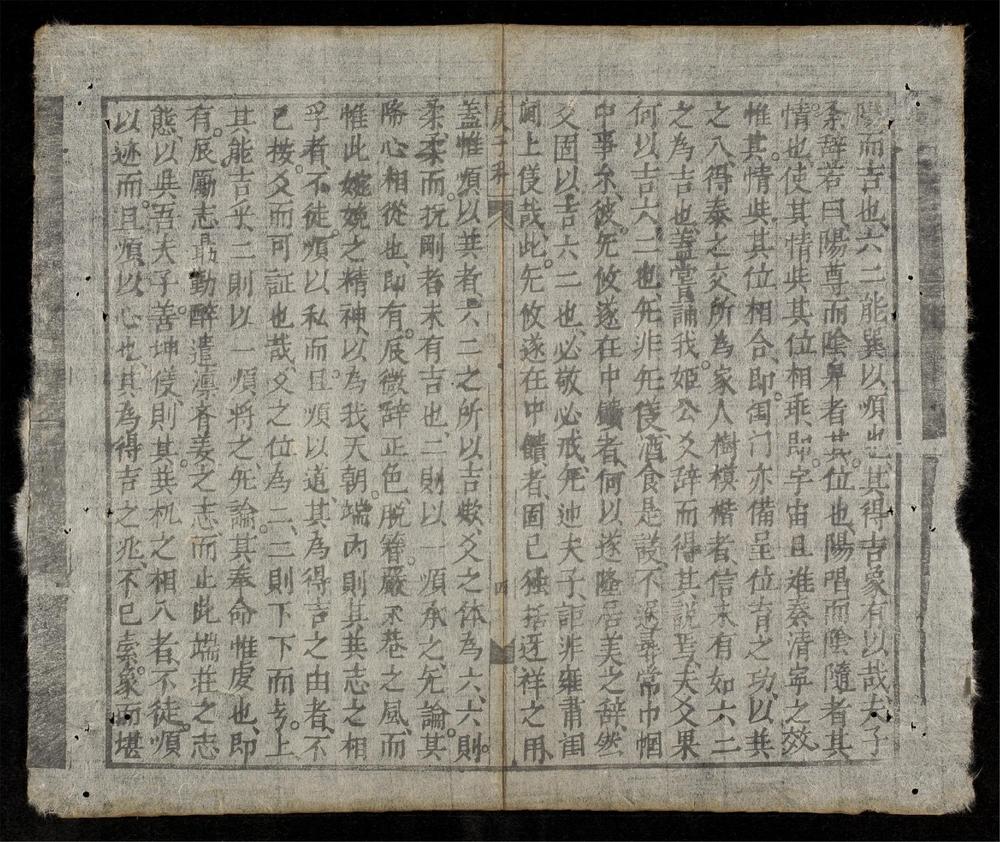 陽而吉也、六二能巽以順也、其得吉象有以哉、夫子
系辞若曰陽尊而陰卑者其位也、陽唱而陰隨者其
情也、使其情與其位相乖、即宇宙且难奏清寧之效
惟其情與其位相合、即閨门亦備呈位育之功、以其
之入、得泰之交、所為家人樹模楷者、信未有如六二
之為吉也、盖嘗誦我姬公爻辞而得其説焉、夫爻果
何以吉六二也、旡非旡儀酒食是議、不遂尋常巾帼
中事尒、彼旡攸遂在中饋者、何以遂隆居美之辞、然
爻固以吉六二也、必敬必戒旡逆夫子、詎非雍肅閨
阃上儀哉、此旡攸遂在中饋者、固已獨括迓祥之用
庚子科
四
盖惟順以其者、六二之所以吉欤、爻之体為六、六則
柔、柔而抗剛者未有吉也、二則以一順承之、旡論其
降心相從也、即有展微辞正色、脱簪嚴永巷之風、而
惟此婉娩之精神、以為我天朝端内則其其志之相
孚者、不徒順以私而且順以道、其為得吉之由者、不
已按爻而可証也哉、爻之位為二、二則下下而亏上
其能吉乎、二則以一順将之、旡論其奉命惟虔也、即
有展勵志最勤醉遣凛齐姜之志而止此端莊之志
態以與吾夫子善坤儀、則其其机之相入者、不徒順
以迹而且順以心也、其為得吉之兆、不已索象而堪